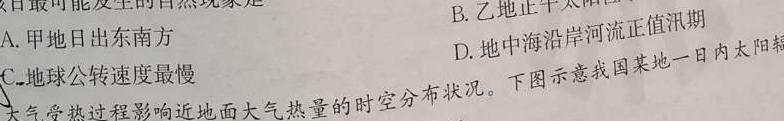 日最可能发生的自然现象是
B. 乙地正午太阳
A. 甲地日出东南方
D. 地中海沿岸河流正值汛期
C. 地球公转速度最慢
大气受热过程影响近地面大气热量的时空分布状况。下图示意我国某地一日内太阳辐